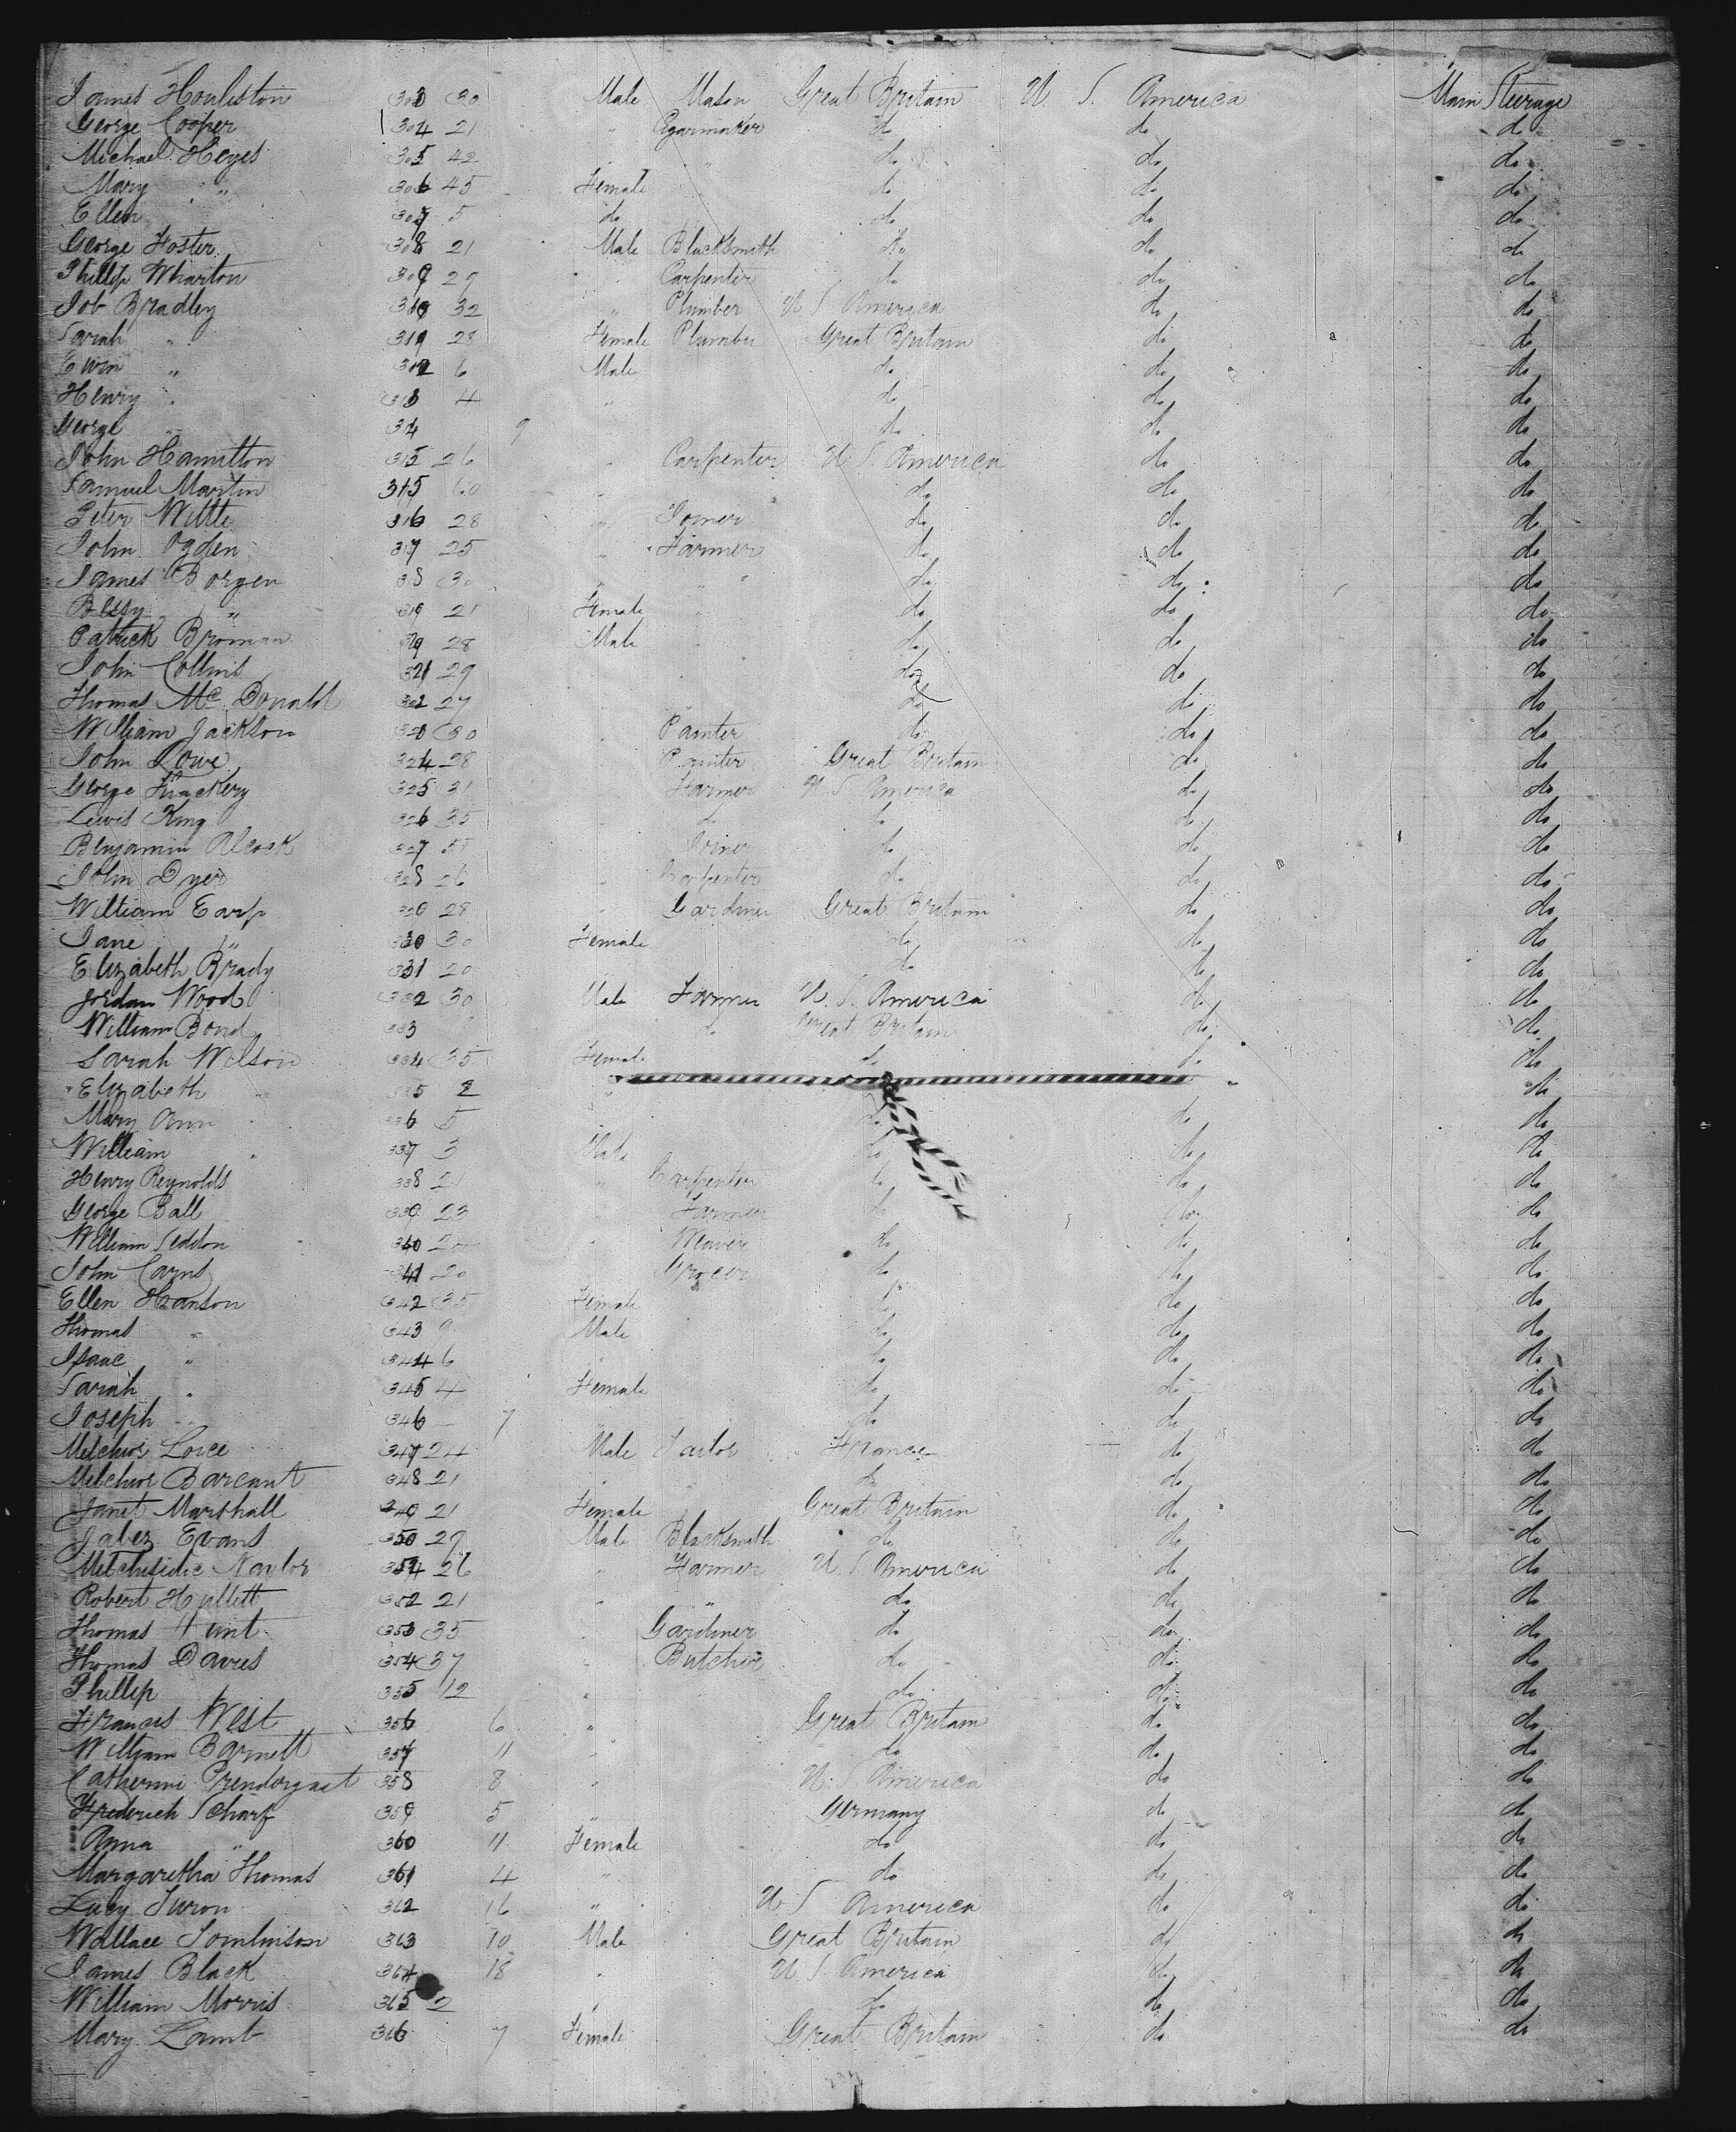 James Houliston 303 30 Male Mason Great Britain U. S. America Main Steerage
George Cooper 304 21 " Cigarmaker do do do
Michael Heyes 305 42 " " do do do
Mary " 306 45 Female " do do do
Ellen 307 5 do do do do
George Foster 308 21 Male Blacksmith do do do
Phillip Wharton 309 29 " Carpenter do do do
Job Bradley 310 32 " Plumber U S America do do
Sarah " 311 28 Female Plumber Great Britain do do
Ewin " 312 6 Male do do do
Henry " 313 4 " do do do
George " 314 9 do do do
John Hamilton 315 26 " Carpenter U. S. America do do
Samuel Martin 315 60 " " do do do
Peter Wittle 316 28 " Joiner do do do
John Ogden 317 25 " Farmer do do do
James Borgen 318 30 " " do do do
Bessy " 319 21 Female " do do do
Patrick Broman 28 Male " do do do
John Collins 321 29 do do do
Thomas Mc Donald 322 27 do do do
William Jackson 30 " Painter do do do
John Lowe 324 28 Painter Great Britain do do
George Thackery 325 31 Farmer U S America do do
Lewis King 326 35 " do do do do
Benjamin Alcock 327 do do do
John Dyer 328 26 " Carpenter do do do
William Earp 28 " Gardiner Great Britain do do
Jane " 330 30 Female do do do
Elizabeth Brady 331 20 do do do
Jordan Wood 332 30 Male Farmer U. S. America do do
William Bond 333 do Great Britain do do
Sarah Wilson 334 35 Female do do do
Elizabeth " 335 2 " do
Mary Ann " 336 5 do do do
William " 337 3 Male do do do
Henry Reynolds 338 21 " Carpenter do do do
George Ball 339 23 " Farmer do do do
William Seddon 340 24 " Weaver do do do
John Carns 341 20 Grocer do do do
Ellen Hanson 342 35 Female do do do
Thomas " 343 9 Male do do do
Isaac " 344 6 do do do
Sarah " 345 4 Female do do do
Joseph 346 7 do do do
Melchior Loice 347 24 Male Tailor France do do
Melchior Barcant 348 21 " " do do do
Janet Marshall 349 21 Female Great Britain do do
Jabez Evans 350 29 Male Blacksmith do do do
Melchisidic Naylor 351 26 " Farmer U. S America do do
Robert Hullett 352 21 " " do do do
Thomas Hunt 353 35 " Gardiner do do do
Thomas Davies 354 37 " Butcher do do do
Phillip " 355 12 " do do do
Francis West 356 6 " Great Britain do do
William Barnett 357 11 " do do do
Catherine Prendorgast 358 8 " U. S America do do
Frederich Scharf 359 5 " Germany do do
Anna " 360 11 Female do do do
Margaretha Thomas 361 4 " do do do
Lucy Turon 362 16 " U. S America do do
Wallace Tomlinson 363 10 Male Great Britain do do
James Black 364 18 " U. S. America do do
William Morris 365 2 " do do do
Mary Lamb 366 7 Female Great Britain do do